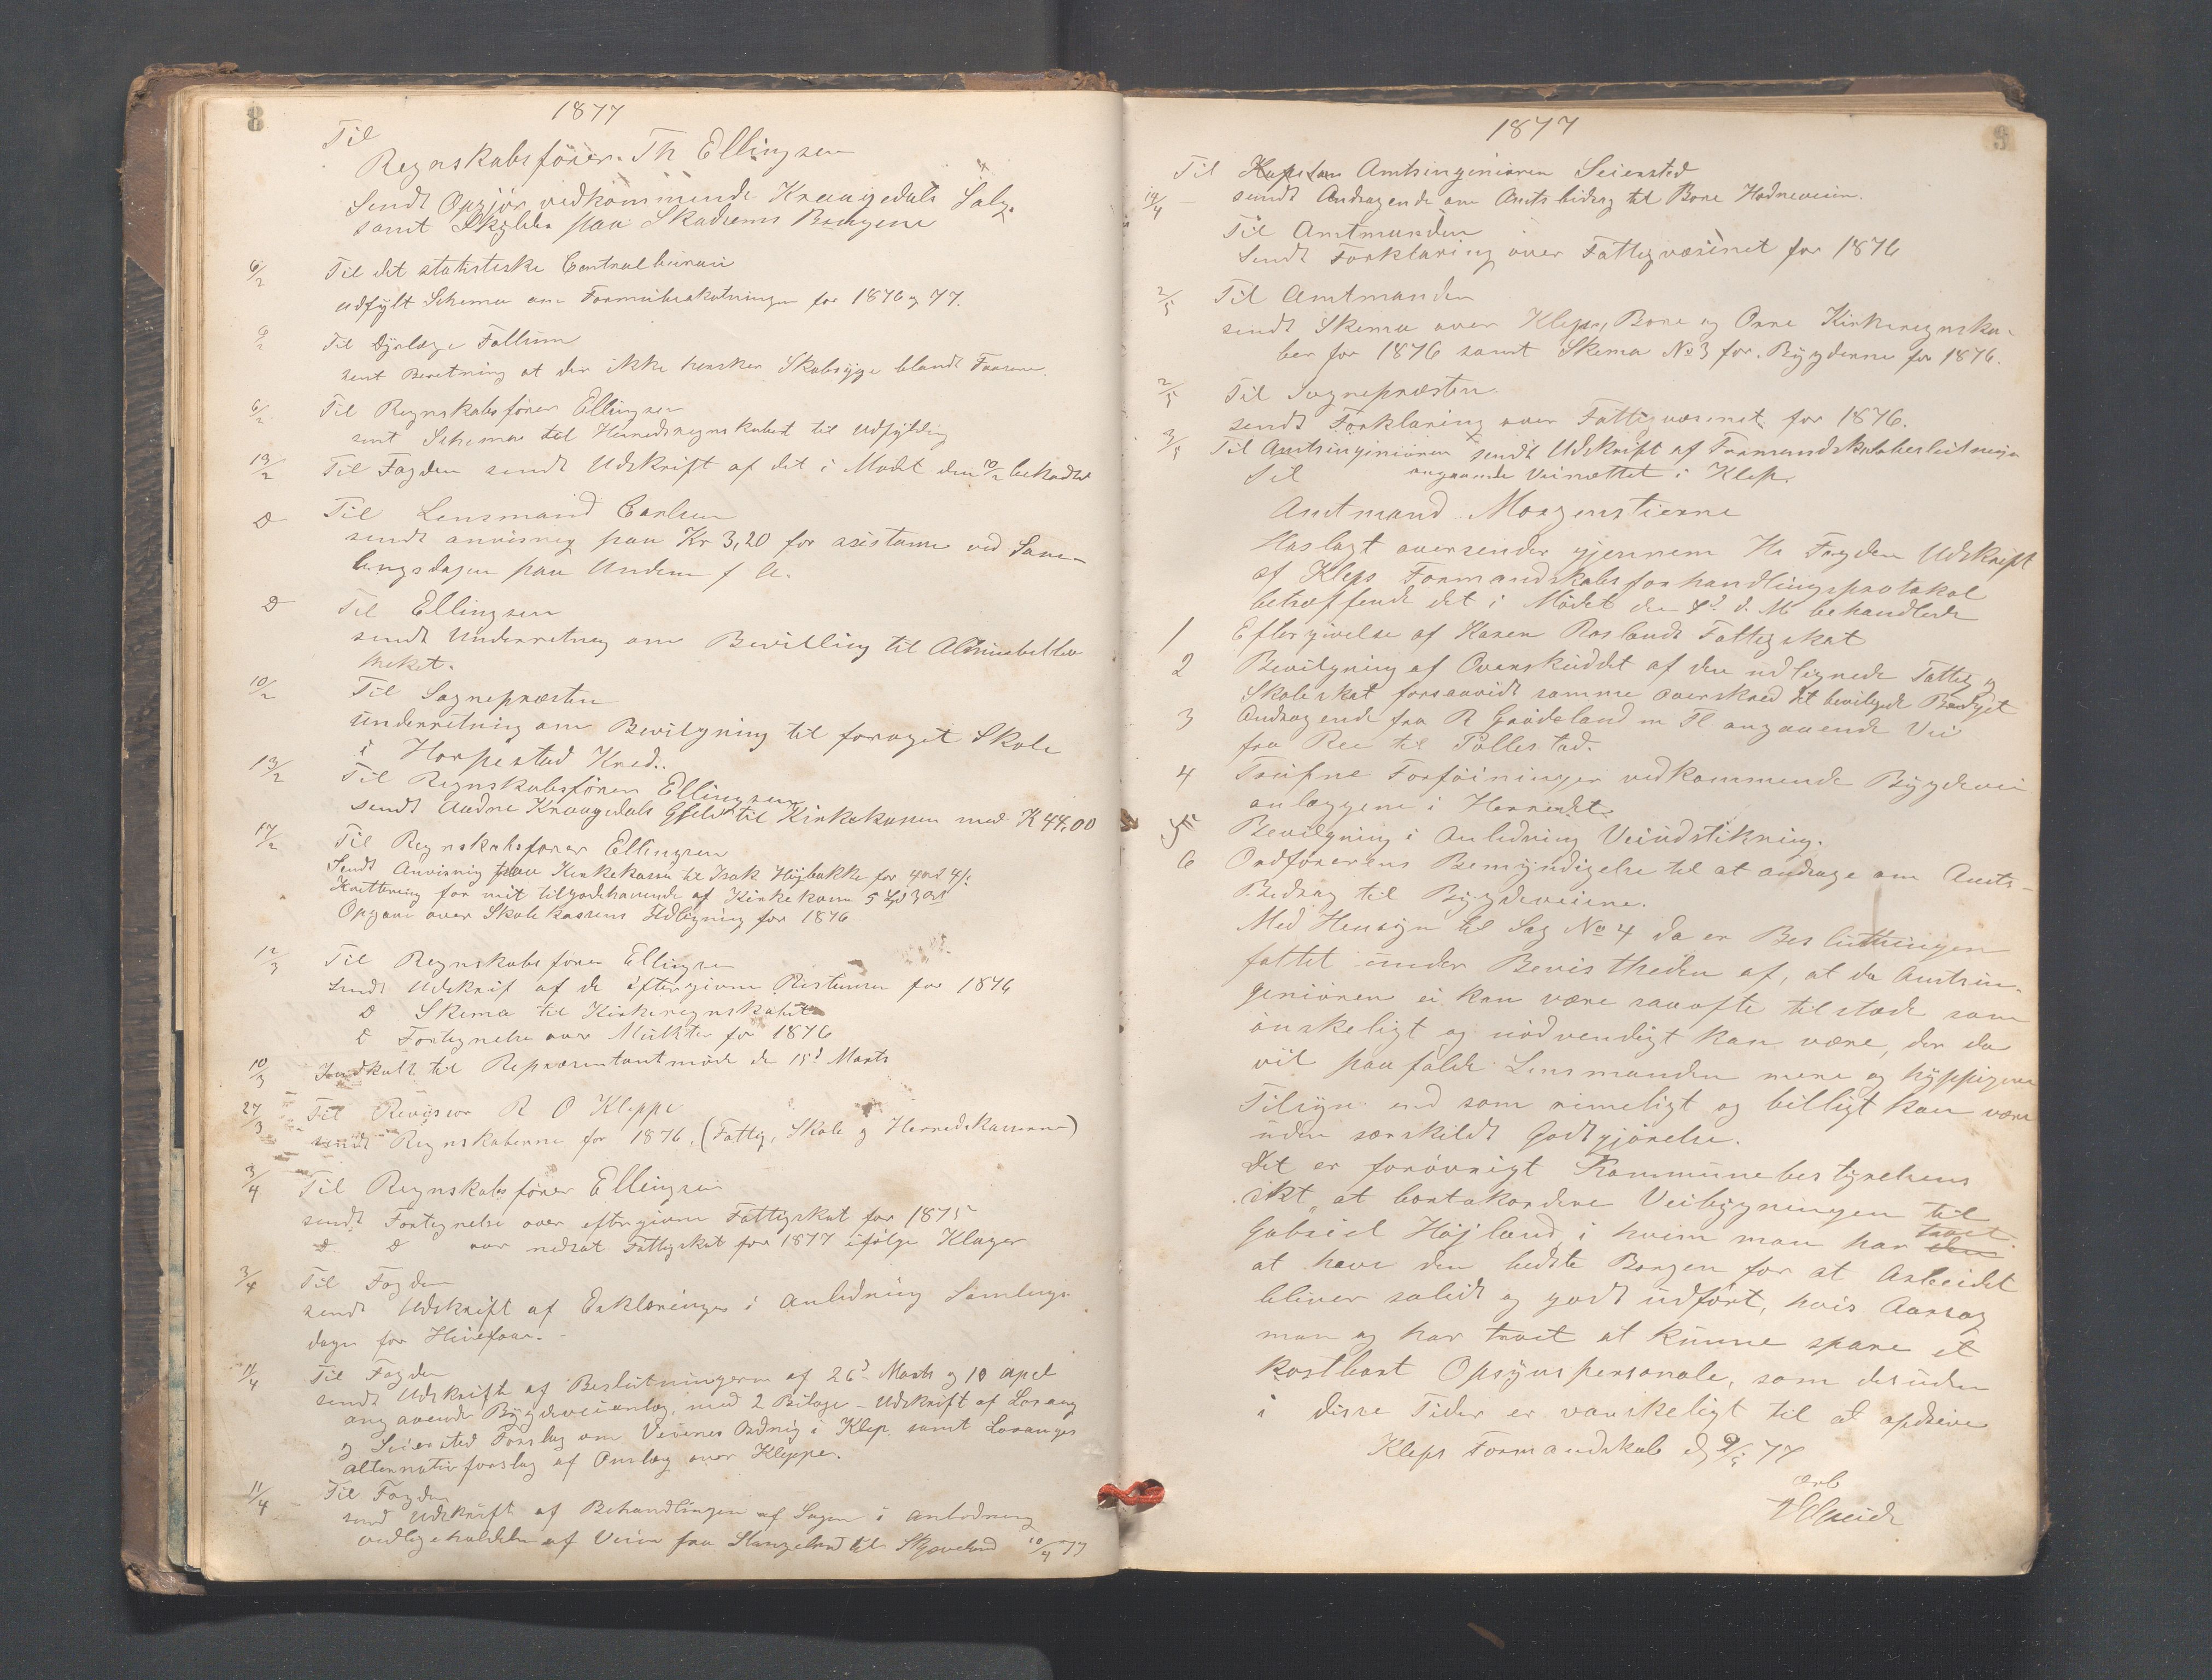 8
1877
Til
Regnskabsfører Th Ellingsen
Sendt Opgjör vedkommende Kraagedals Salg
samt Skylder paa Skadsems Bruget
6/2 Til det statistiske Centralbureau
udfylt Schema om Formuesbeskatningen for 1876 og 77.
6/2 Til Dyrlæge Fallum
sent Beretning at der ikke hersker Skabsyge blandt Faarene.
6/2 Til Regnskabsfører Ellingsen
sent Schema til Herredsregnskabet til Udfylding
13/2 Til Fogden sendt Udskrift af det i Mødet den 10/2 behandlede
D Til Lensmand Carlsen
sendt anvisning paa Kr 3,20 for asistance ved Sam-
lingsdagen paa Undem f A.
D Til Ellingsen
sendt Underretning om Bevilling til Almuebiblio
theket.
10/2 Til Sognepræsten
underretning om Bevilgning til forøget Skole
i Horpestad Kred.
13/2 Til Regnskabsfører Ellingsen
sendt Andre Kraagedals Gjeld til Kirkekassen med K 44,00
17/2 Til Regnskabsfører Ellingsen
Sendt Anvisning paa Kirkekassen til Isak Højbakke for 4 ort 4 s
Kvittering for mit tilgodehavende af Kirkekassen 5 Spd 3 ort
Opgave over Skolekassens Udligning for 1876
12/3 Til Regnskabsfører Ellingsen
sendt Udskrif af de eftergivne Restancer for 1876
D Skema til Kirkeregnskabet
D Fortegnelse over Mulkter for 1876
10/3 Indkalt til Repræsentantmøde de 15d Marts
27/3 Til Revisor R O Kleppe
sendt Regnskaberne for 1876. (Fattig, Skole og Herredskasserne)
3/4 Til Regnskabsfører Ellingsen
sendt Fortegnelse over eftergivne Fattigskat for 1875
D D over nedsat Fattigskat for 1877 ifølge Klager
3/4 Til Fogden
sendt Udskrift af Erklæringer i Anledning Samlings
dage for Heiefaar.
11/4 Til Fogden
sendt Udskrift af Beslutningerne af 26d Marts og 10 April
angaaende Bygdeveianlæg, med 2 Bilage - Udskrift af Lorang
og Seiersted Forslag om Veienes Ordnig i Klep samt Loranges
alternativ forslag af Anlæg over Kleppe.
11/4 Til Fogden
send Udskrift af Behandlingen af Sagen i anledning
vedligeholdelse af Veien fra Stangeland til Skjæveland 10/4 77
9
1877
Til Kaptein Amtsingeniøren Seiersted
19/4 - sendt Andragende om Amtsbidrag til Bore Hodneveien.
Til Amtmanden
Sendt Forklaring over Fattigvæsenet for 1876
2/5 Til Amtmanden
sendt Skema over Klep, Bore og Orre Kirkeregnska-
ber for 1876 samt Skema No 3 for Bygderne for 1876.
2/5 Til Sognepræsten.
sendt Forklaring over Fattigvæsenet for 1876.
3/5 Til Amtsingeniøren sendt Udskrift af Formandskabsbeslutninger
angaaende Veinættet i Klep.
Til
Amtmand Morgenstierne
Haslagt oversender gjennem Hr Fogden Udskrift
af Kleps Formandskabsforhandlingsprotokol
betræffende det i Mødet den 4d d. M. behandlede
1 Eftergivelse af Karen Roslands Fattigskat
2 Bevilgning af Overskuddet af den udlignede Fattig og
Skoleskat forsaavidt samme overskred det bevilgede Budget
3 Andragende fra R Grødeland m Fl angaaende Vei
fra Ree til Pollestad.
4 Trufne Forføininger vedkommende Bygdevei
anlæggene i Herredet.
5 Bevilgning i Anledning Veiudstikning.
6 Ordførerens Bemyndigelse til at andrage om Amts-
Bidrag til Bygdeveiene.
Med Hensyn til Sag No 4 da er Beslutningen
fattet under Bevistheden af, at da Amtsin-
geniøren ei kan være saaofte tilstede som
ønskeligt og nødvendigt kan være, der da
vil paafalde Lensmanden mere og hyppigere
Tilsyn end som rimeligt og billigt kan være
uden særskildt Godtgjørelse.
Det er forøvrigt Kommunebestyrelsens
ikt, at bortakordere Veibygningen til
Gabriel Højland i hvem man har troet
at have den bedste Borgen for at Arbeidet
bliver solidt og godt udført, hvis Aarsag
man og har troet at kunne spare et
kostbart Opsynspersonale, som desuden
i disse Tider er vanskeligt til at opdrive
Kleps Formandskab d 9/5 77
ærb